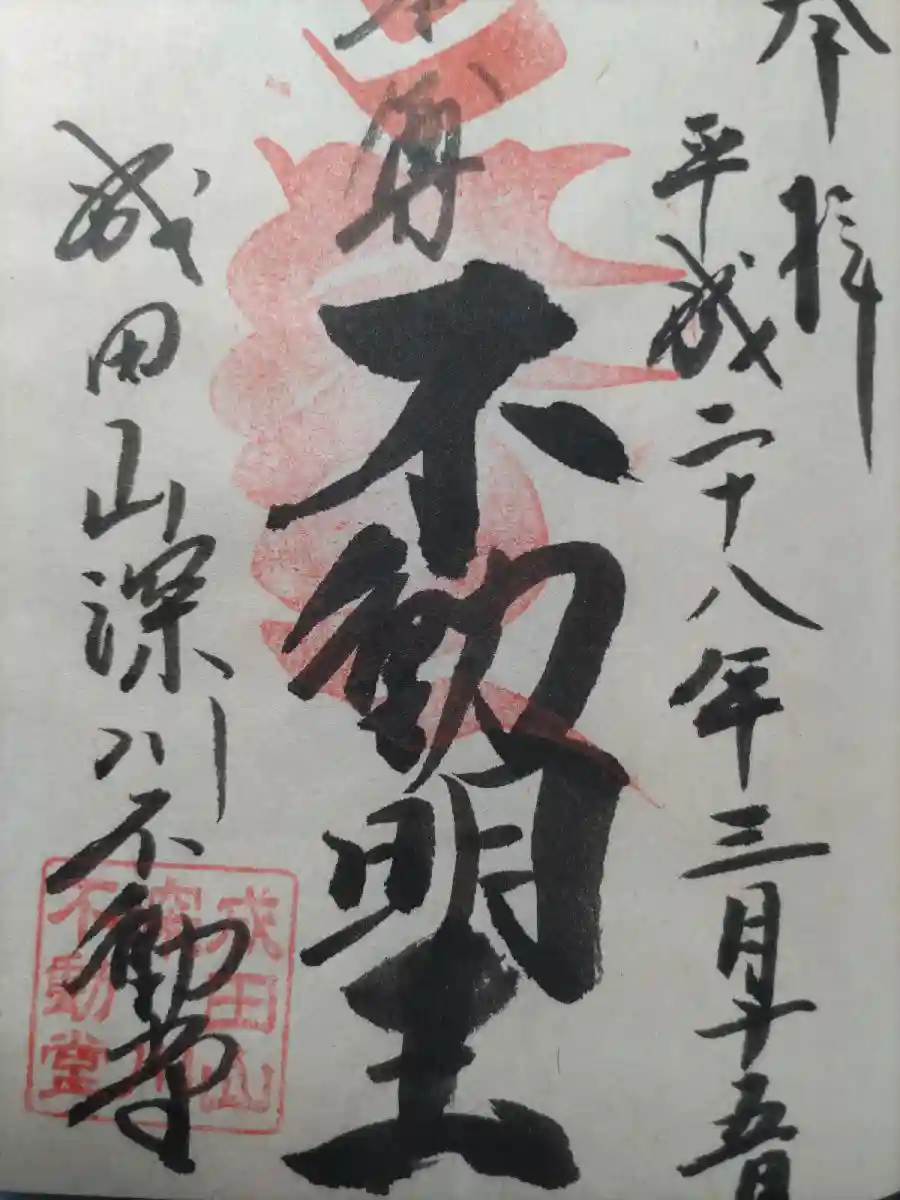 奉拝
平成二十八年三月十五日
本尊
不動明王
成田山深川不動堂
成田山
深川
不動堂